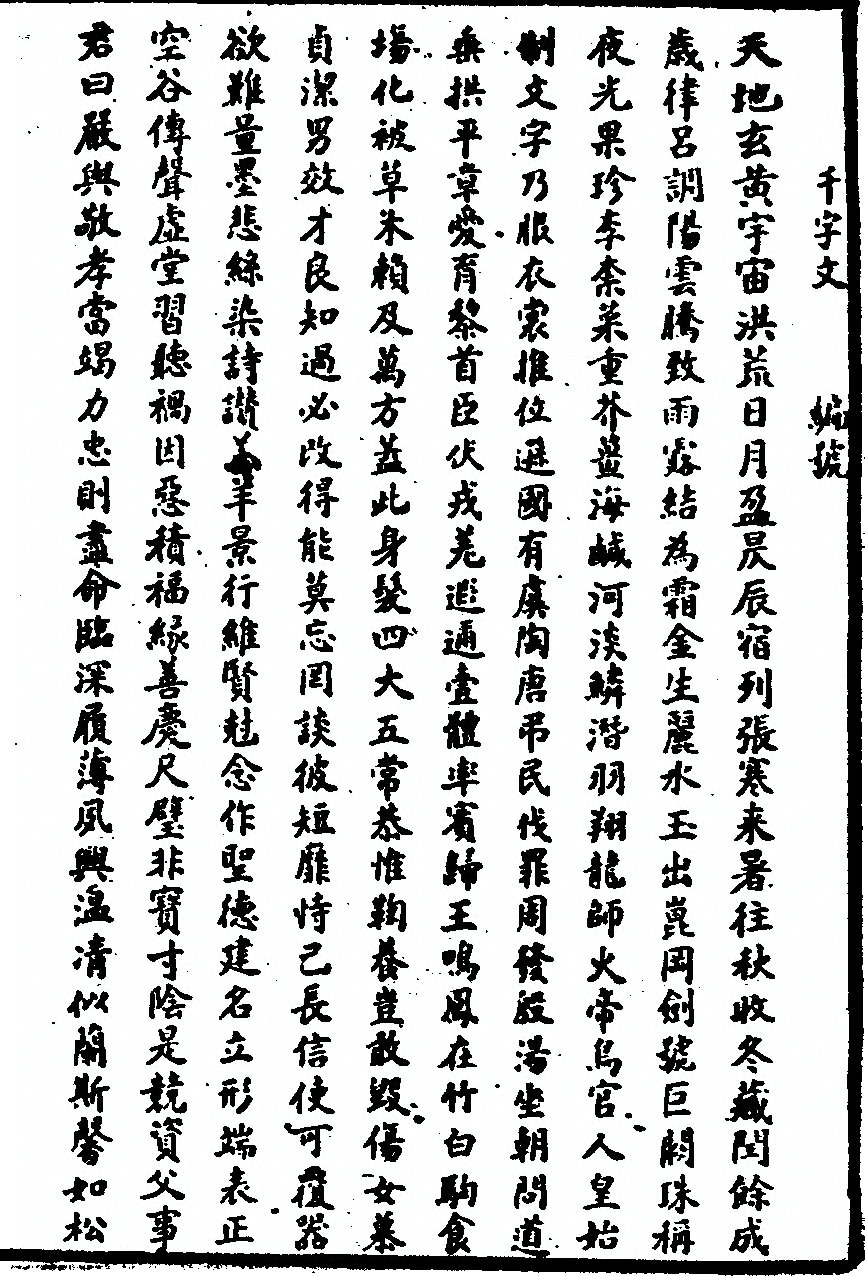 千字文 編號
天地玄黃宇宙洪荒日月盈昃辰宿列張寒来暑往秋收冬藏閏餘成
歲律呂調陽雲騰致雨露結為霜金生麗水玉出崑岡劍號巨闕珠稱
夜光果珍李柰菜重芥薑海鹹河淡鱗潛羽翔龍師火帝鳥官人皇始
制文字乃服衣裳推位遜國有虞陶唐吊民伐罪周發殷湯坐朝問道
垂拱平章愛育黎首臣伏戎羌遐邇壹體率賓歸王鳴鳳在竹白駒食
場化被草木賴及萬方蓋此身髮四大五常恭惟鞠養豈敢毀傷女慕
貞潔男效才良知過必改得能莫忘罔談彼短靡恃己長信使可覆器
欲難量墨悲絲染詩讚羔羊景行維賢尅念作聖德建名立形端表正
空谷傳聲虛堂習聽禍因惡積福緣善慶尺璧非寶寸陰是競資父事
君曰嚴與敬孝當竭力忠則盡命臨深履薄夙興溫凊似蘭斯馨如松